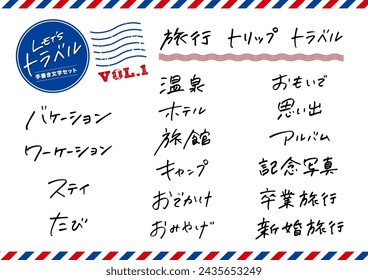 Let's
トラベル
手書き文字セット
VOL.1
旅行 トリップ トラベル
バケーション
ワーケーション
ステイ
たび
温泉
ホテル
旅館
キャンプ
おでかけ
おみやげ
おもいで
思い出
アルバム
記念写真
卒業旅行
新婚旅行
shutterstock
IMAGE ID: 2435653249
www.shutterstock.com